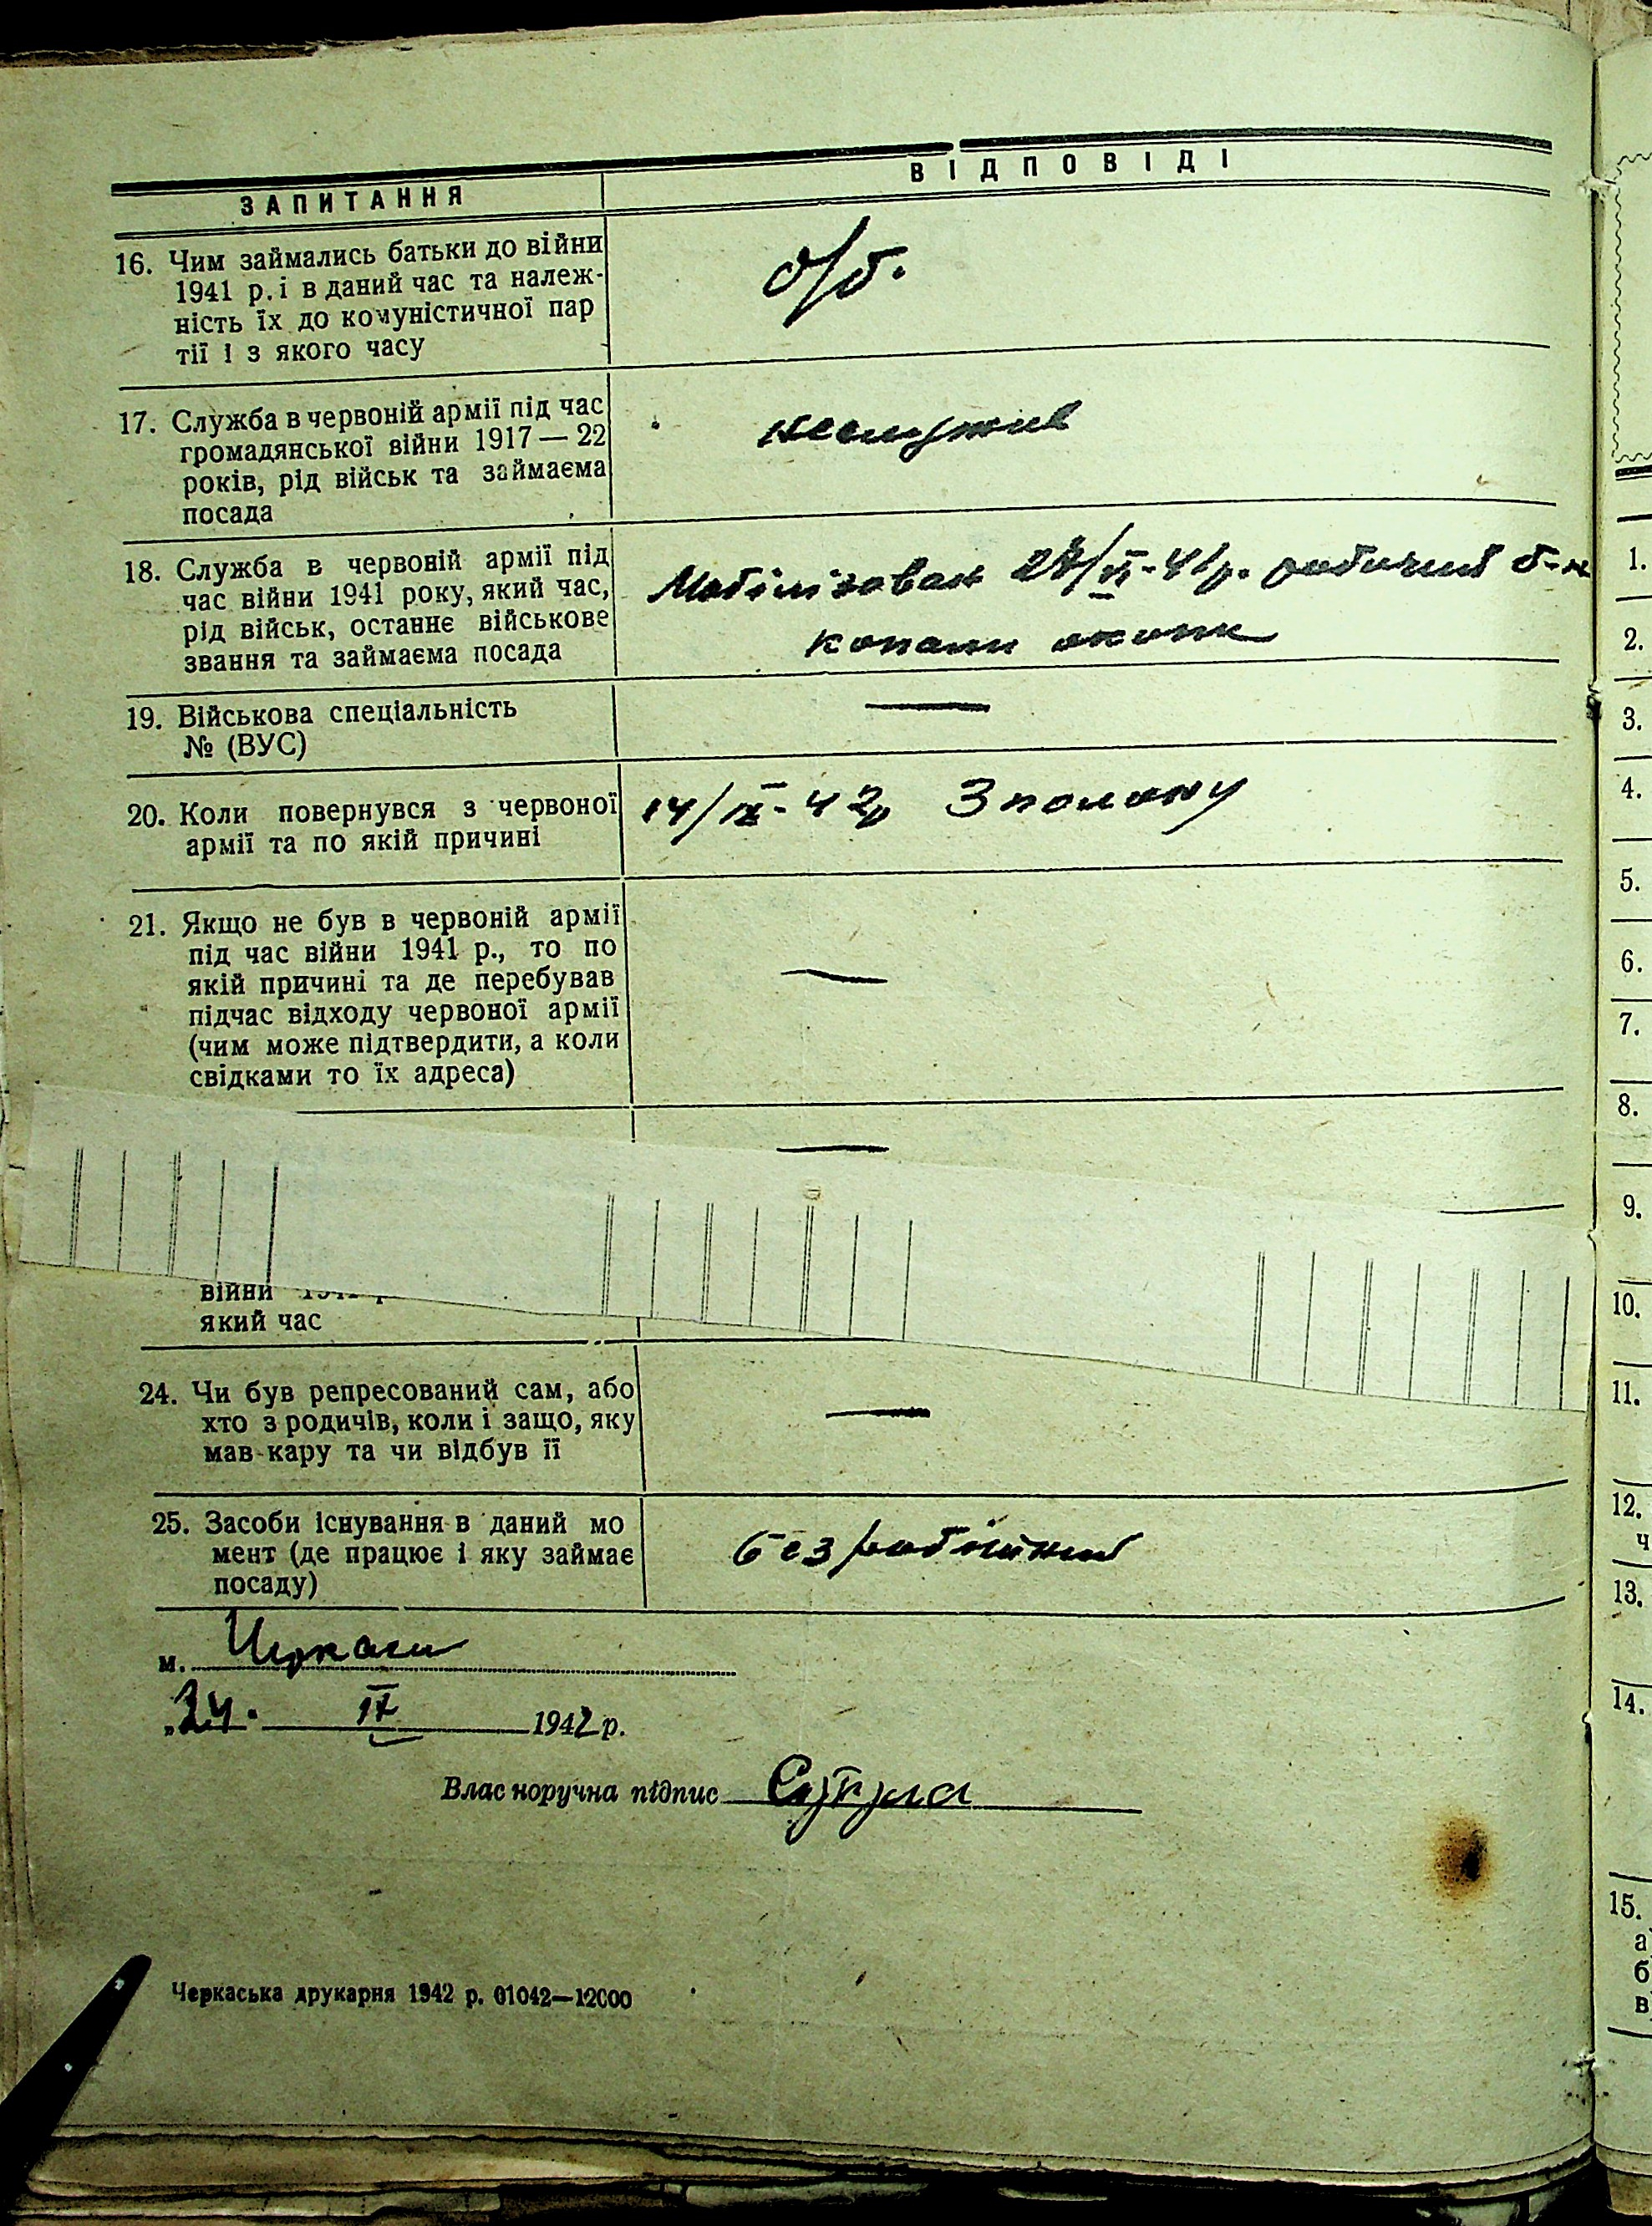 ЗАПИТАННЯ
ВІДПОВІДІ
16. Чим займались батьки до війни
1941 р. і в даний час та належ-
ність їх до комуністичної пар
тії і з якого часу
б/б.
17. Служба в червоній армії під час
громадянської війни 1917 — 22
років, рід військ та займаєма
посада
неслужив
18. Служба в червоній армії під
час війни 1941 року, який час,
рід військ, останнє військове
звання та займаєма посада
Мобілізован /VI-41р. рабочий б-н
копали окопи
19. Військова спеціальність
№ (ВУС)
—
20. Коли повернувся з червоної
армії та по якій причині
14/IX-42р З полону
21. Якщо не був в червоній армії
під час війни 1941 р., то по
якій причині та де перебував
підчас відходу червоної армії
(чим може підтвердити, а коли
свідками то їх адреса)
—
—
війни
який час
24. Чи був репресований сам, або
хто з родичів, коли і защо, яку
мав кару та чи відбув її
—
25. Засоби існування в даний мо
мент (де працює і яку займає
посаду)
безробітний
м. Черкаси
„24. IX 1942 р.
Власноручна підпис
Черкаська друкарня 1942 р. 01042—12000
1.
2.
3.
4.
5.
6.
7.
8.
9.
10.
11.
12.
ч
13.
14.
15.
а
б
в